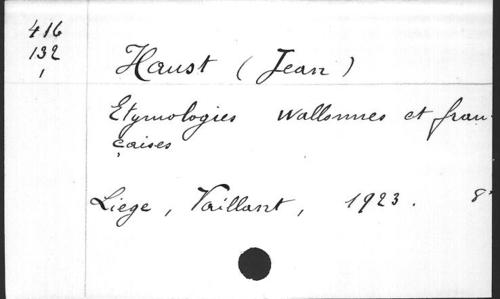 416
132
1
Haust (Jean)
Etymologies wallonnes et fran-
çaises
Liege, Vaillant, 1923. 8°